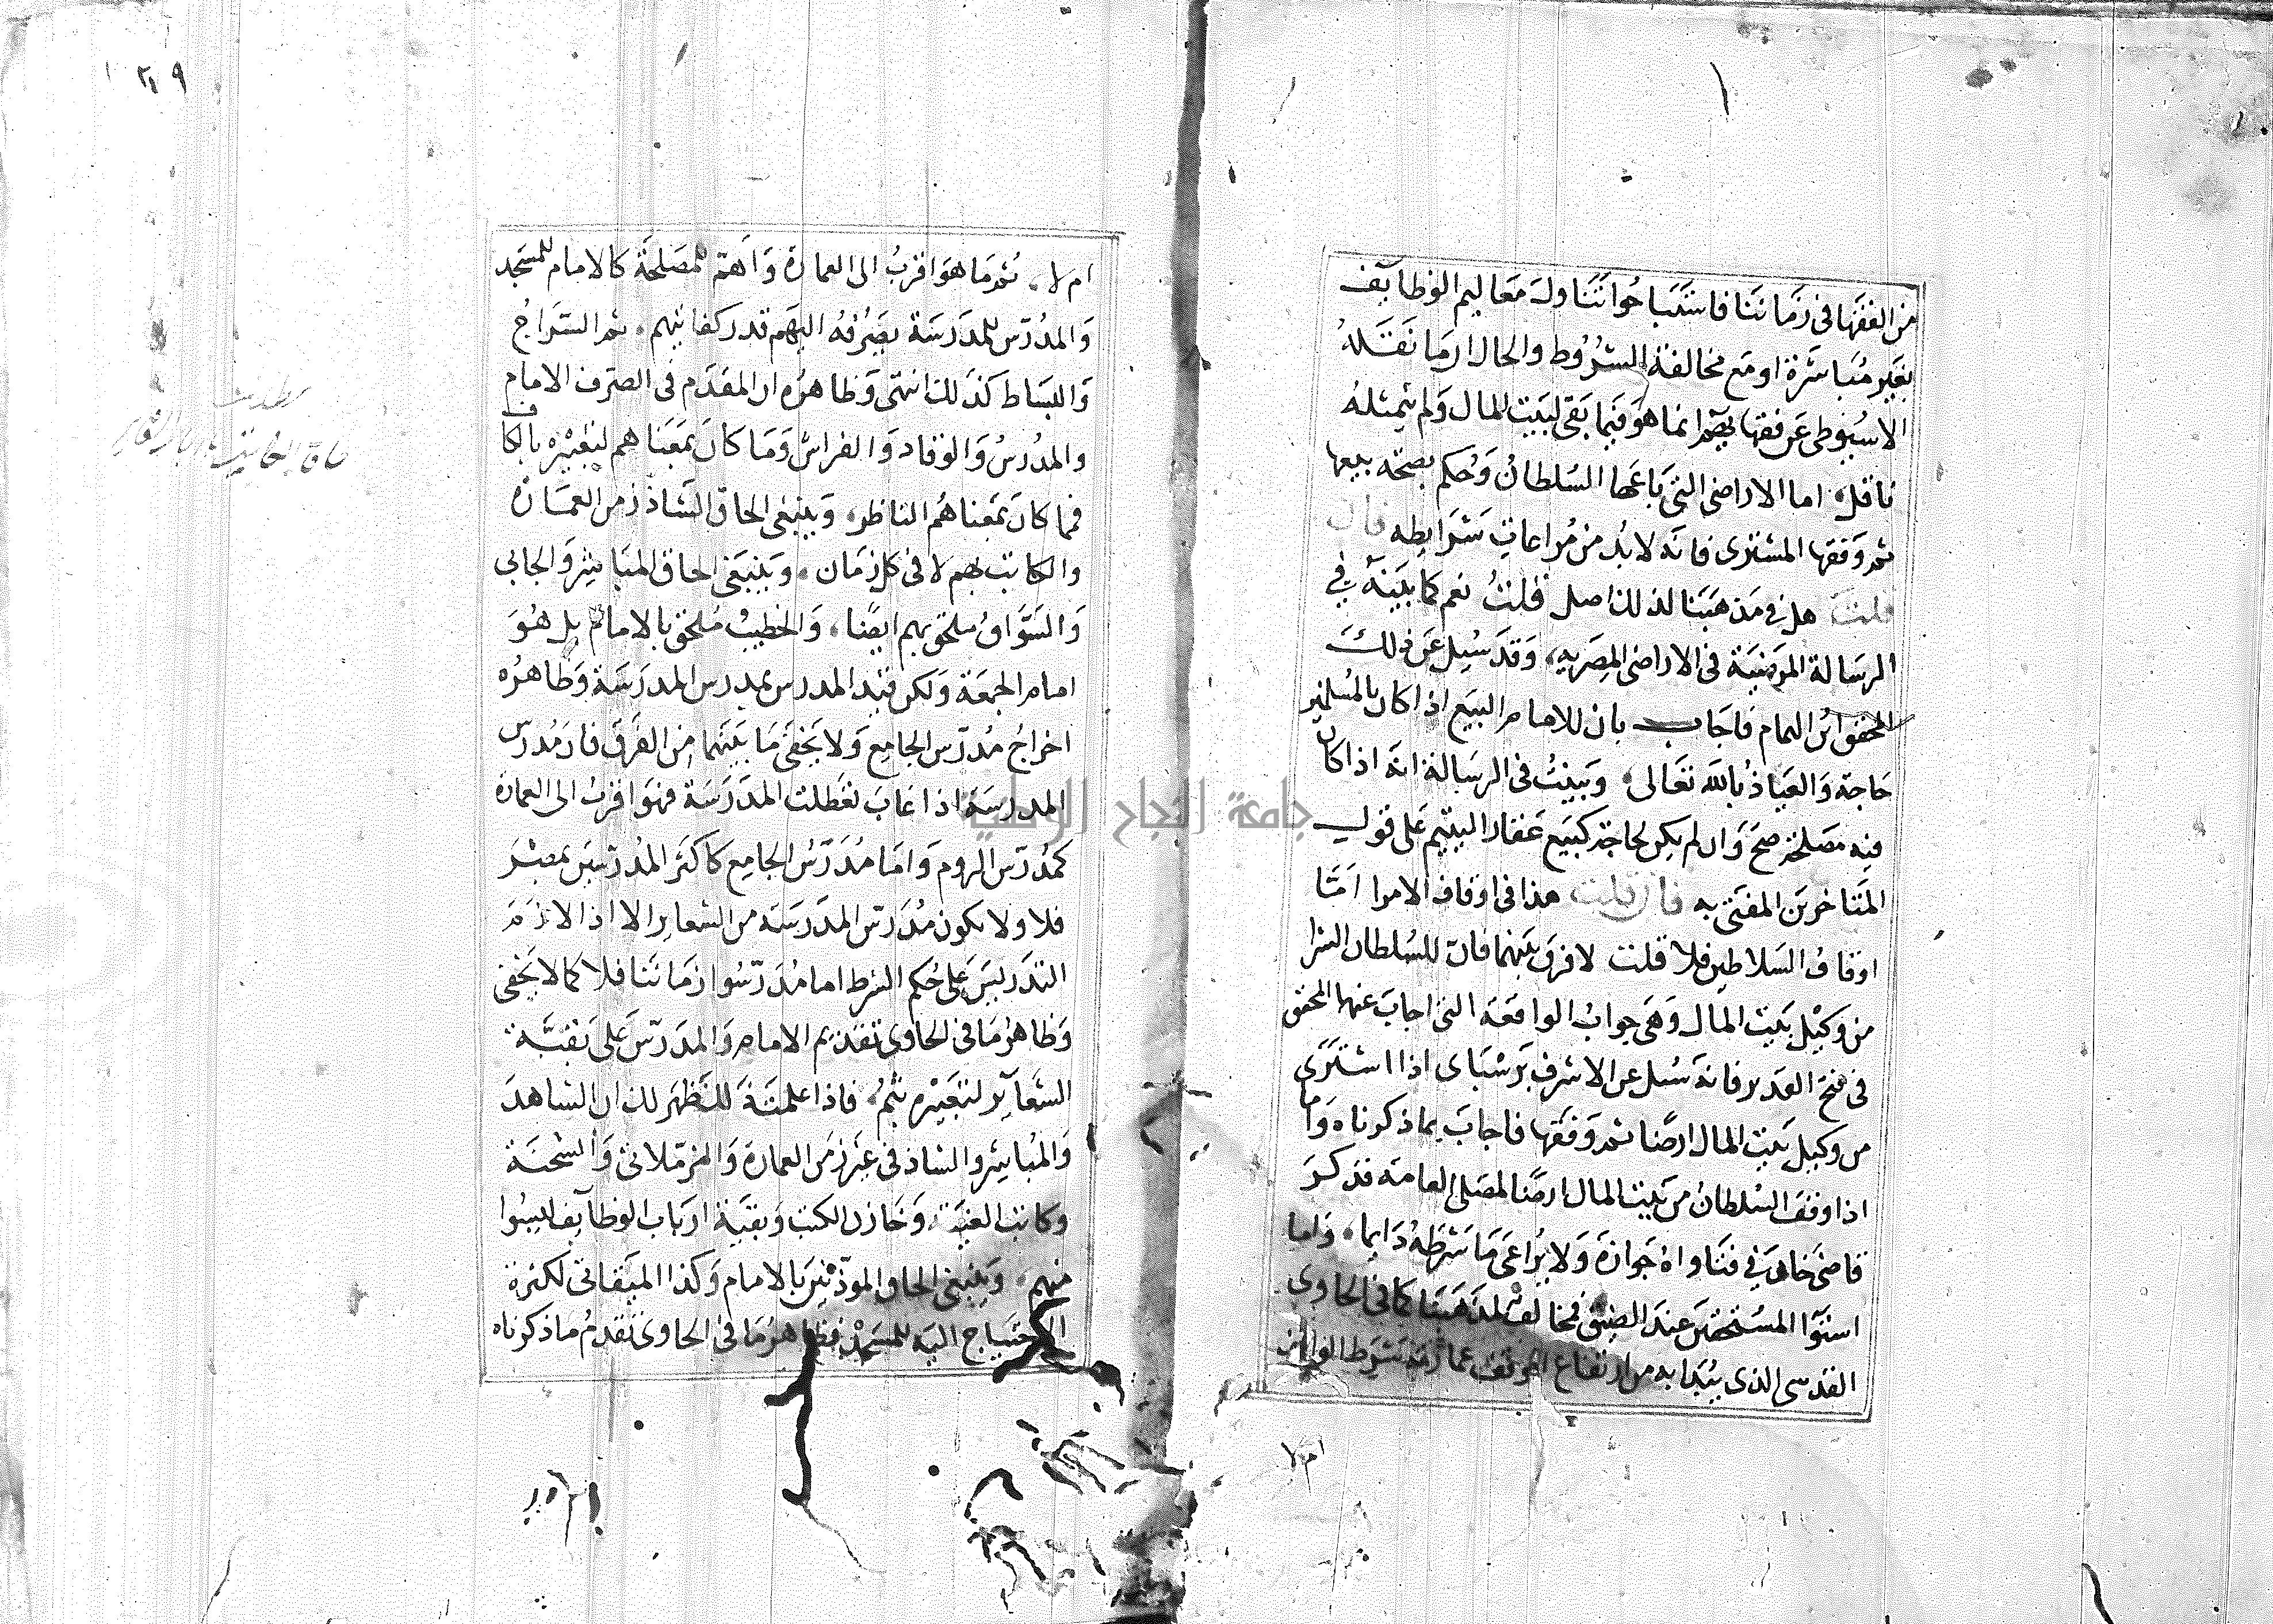 من الفقها في زماننا فاستباحوا تناول معاليم الوظايف
بغير مباشرة او مع مخالفة الشروط والحال ان ما نقله
الاسيوطي عن فقهايهم انما هو فيما بقي لبيت المال ولم يثبت له
ناقل، اما الاراضي التي باعها السلطان وحكم بصحة بيعها
ثم وقفها المشتري فانه لا بد من مراعات شرايطه فان
قلت هل في مذهبنا لذلك اصل قلت نعم كما بينته في
الرسالة المرضية في الاراضي المصريه، وقد سيل عن ذلك
المحقق ابن الهمام فاجاب بان للامام البيع اذا كان بالمسلمين
حاجة والعياذ بالله تعالى، وبينت في الرسالة انه اذا كان
فيه مصلحة صح وان لم يكن لحاجة كبيع عقار اليتيم على قول
المتاخرين المفتى به فان قلت هذا في اوقاف الامرا اما
اوقاف السلاطين فلا قلت لا فرق بينهما فان للسلطان الشرا
من وكيل بيت المال وهي جواب الواقعة التي اجاب عنها المحقق
في فتح القدير فانه سيل عن الاشرف برسباى اذا اشترى
من وكيل بيت المال ارضا ثم وقفها فاجاب بما ذكرناه واما
اذا وقف السلطان من بيت المال ارضا لمصلحة العامة فذكر
قاضي خان في فتاواه جوازه ولا يراعى ما شرطه دايما، واما
استوا المستحقين عند الضيق فمخالف لمذهبنا كما في الحاوى
القدسي الذي يبدا به من ارتفاع الوقف عمارته شرط الواقف
ام لا
١٢٩
ام لا، ثم ما هو اقرب الى العمارة واهم للمصلحة كالامام للمسجد
والمدرس للمدرسة يصرفه اليهم قدر كفايتهم، ثم السراج
والبساط كذلك انتهى وظاهره ان المقدم في الصرف الامام
والمدرس والوقاد والفراش وما كان بمعناهم لتعبيره بالكاف
فما كان بمعناهم الناظر، وينبغي الحاق الشاد زمن العمارة
والكاتب بهم لا في كل زمان، وينبغي الحاق المباشر والجابي
والسواق ملحق بهم ايضا، والخطيب ملحق بالامام بل هو
امام الجمعة ولكن قيد المدرس بمدرس المدرسة وظاهره
اخراج مدرس الجامع ولا يخفى ما بينهما من الفرق فان مدرس
المدرسة اذا غاب تعطلت المدرسة فهو اقرب الى العمارة
كمدرس الروم واما مدرس الجامع كاكثر المدرسين بمصر
فلا ولا يكون مدرس المدرسة من الشعاير الا اذا لازم
التدريس على حكم الشرط اما مدرسوا زماننا فلا كما لا يخفى
وظاهر ما في الحاوى تقديم الامام والمدرس على بقية
الشعاير لتعبيره بثم، فاذا علمت ذلك ظهر لك ان الشاهد
والمباشر والشاد في غير زمن العمارة والمزملاتي والشحنة
وكاتب الغيبة وخازن الكتب وبقية ارباب الوظايف ليسوا
منهم، وينبغي الحاق الموذنين بالامام وكذا الميقاتي لكثرة
الاحتياج اليه للمسجد فظاهر ما في الحاوى تقدم ما ذكرناه